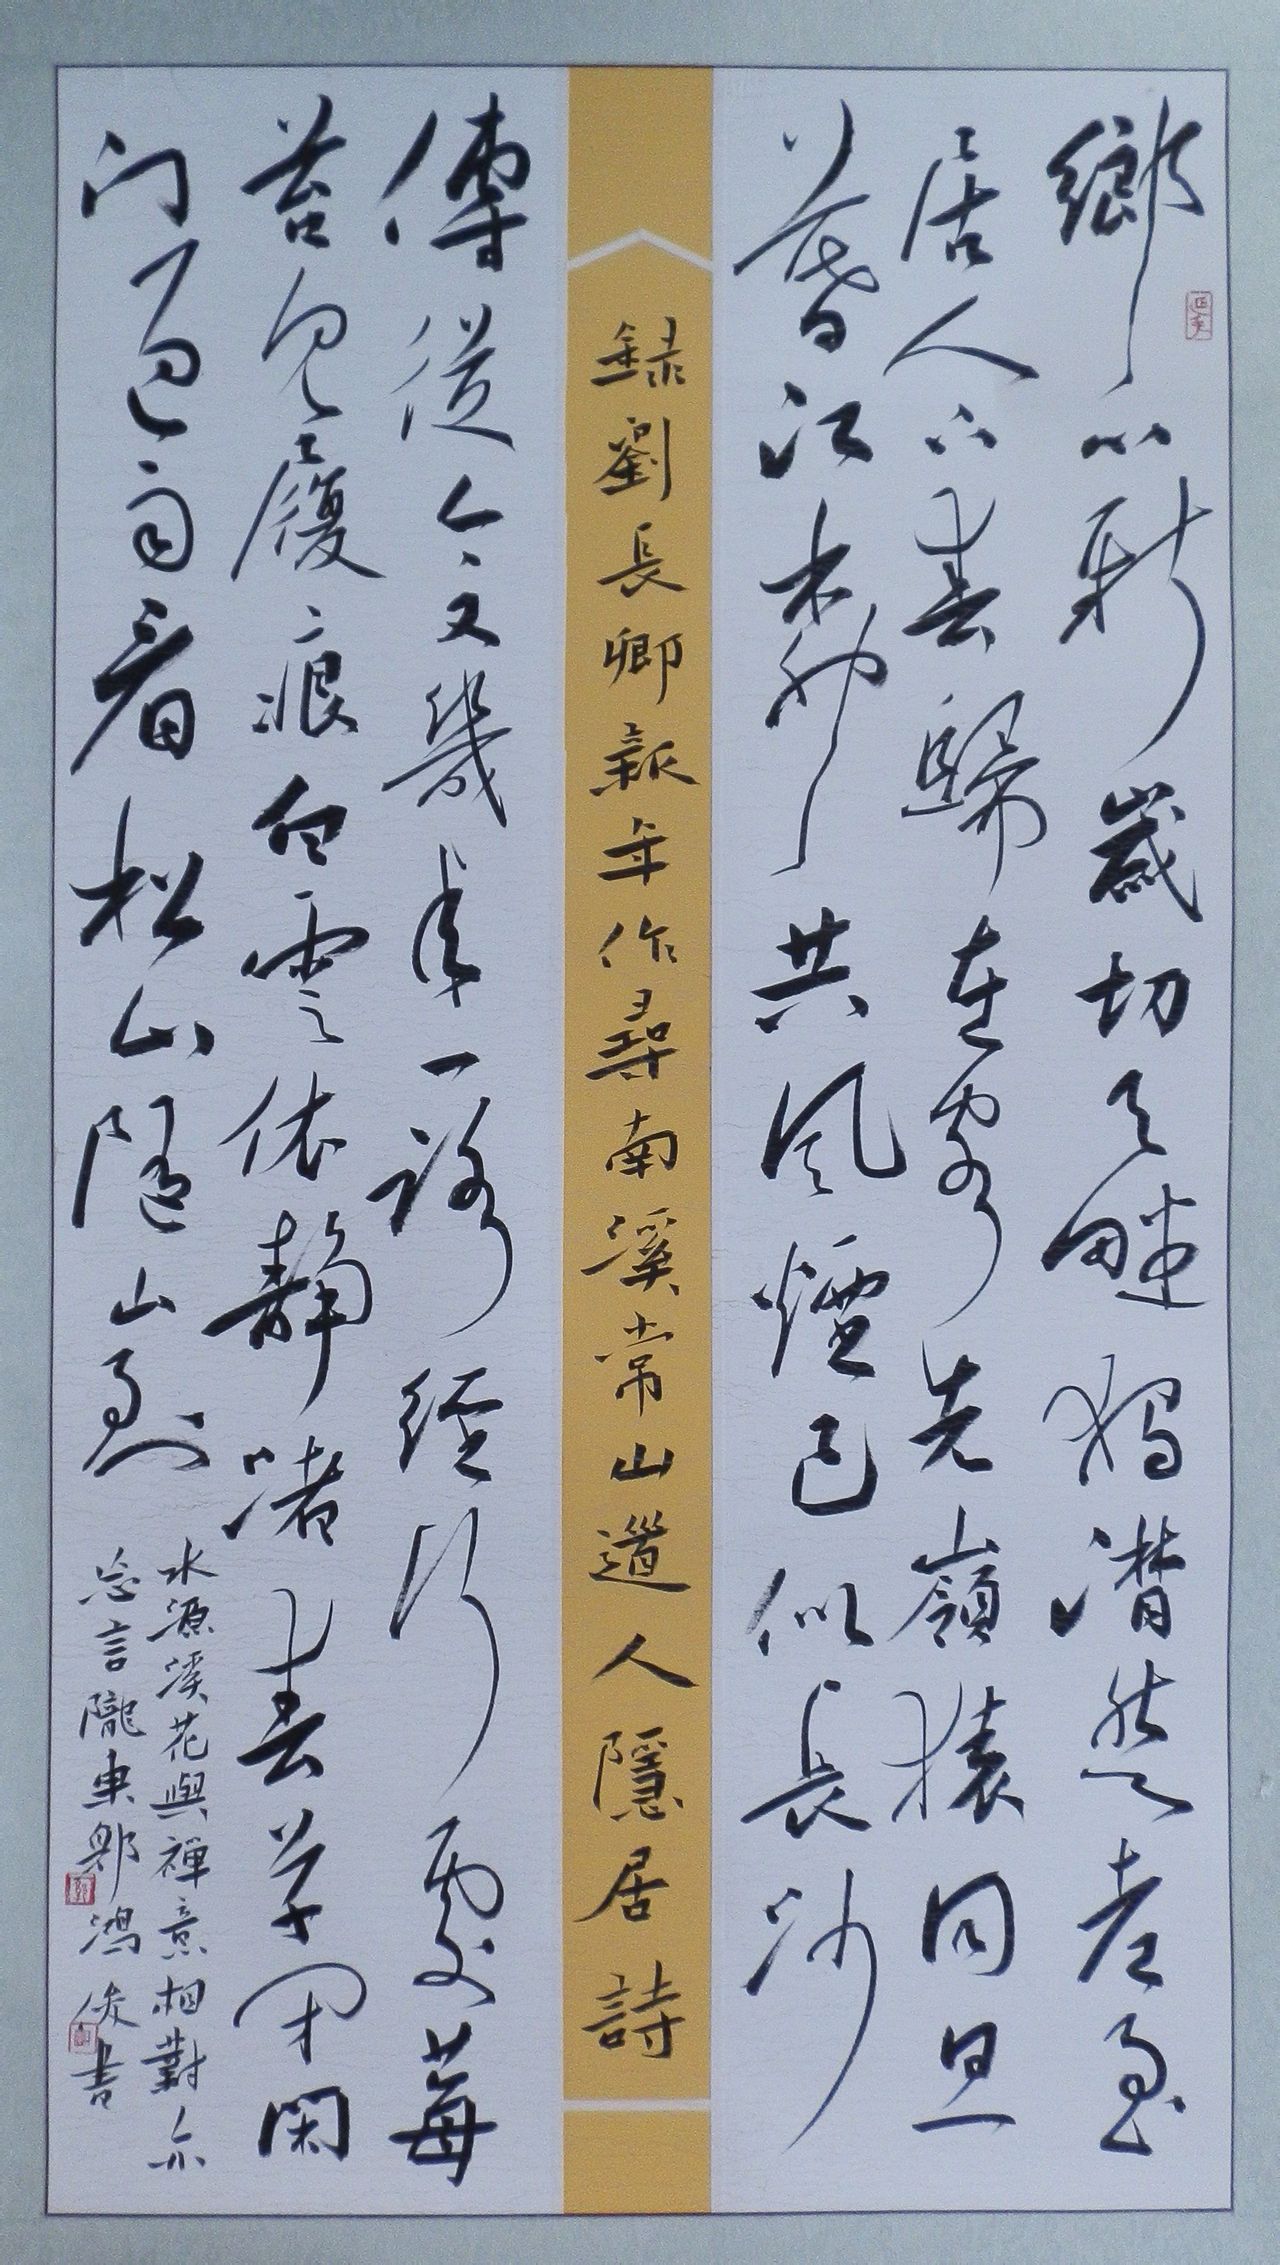 鄉心新歲切天畔獨潸然老至
居人下春歸在客先嶺猿同旦
暮江柳共風煙已似長沙
録劉長卿新年作尋南溪常山道人隱居詩
傅從今又幾年一路經行處莓
苔見履痕白雲依靜渚春草閉閑
门過雨看松色隨山到
水源溪花與禪意相對亦
忘言隴東郭鴻俊書